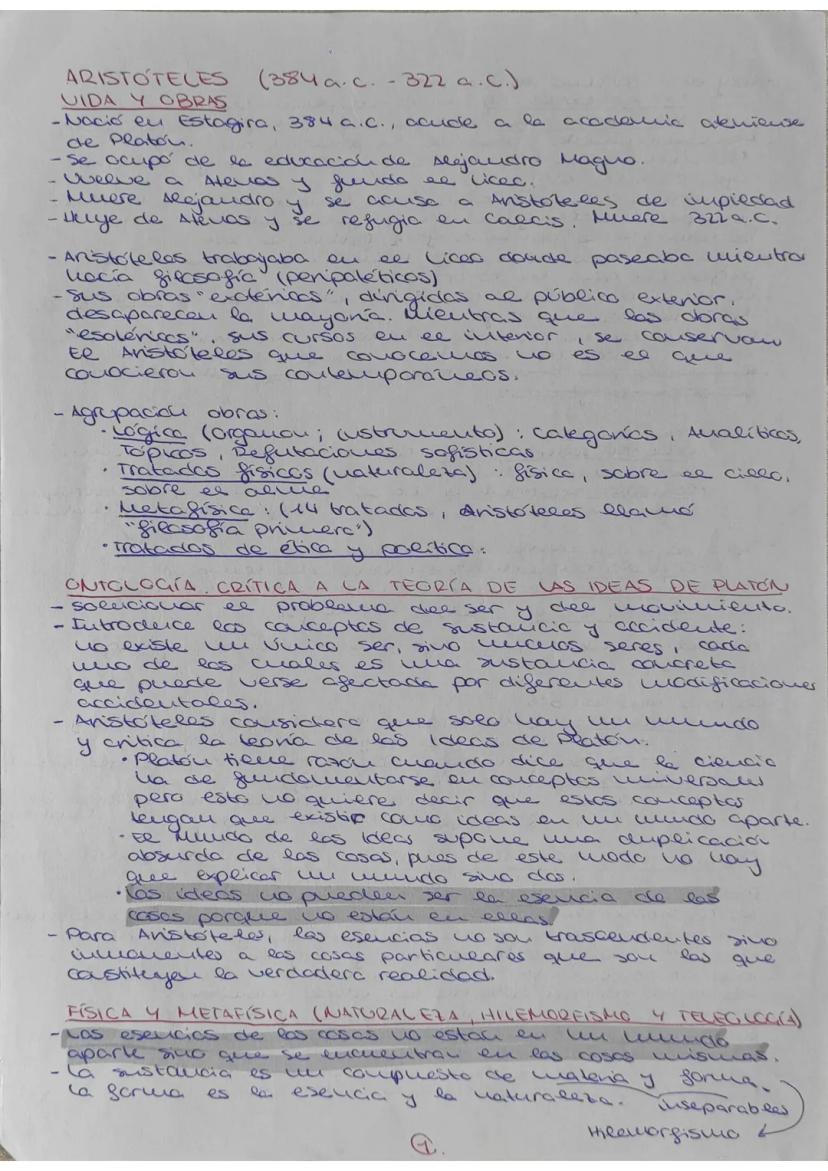 ARISTÓTELES (384 a.c. - 322 a.c.)
VIDA Y OBRAS
- Nació en Estagira, 384 a.c., acude a la academia ateniense
de Platón.
- Se ocupó de la educación de Alejandro Magno.
- Vuelve a Atenas y funda el Liceo.
- Muere Alejandro y se acusa a Aristóteles de impiedad
- Huye de Atenas y se refugia en Calcis. Muere 322 a.c.
- Aristóteles trabajaba en el Liceo donde paseaba mientra
hacía filosofía (peripatéticos)
- Sus obras "exotéricas", dirigidas al público exterior,
desaparecen la mayoría. Mientras que las obras
"esotéricas", sus cursos en el interior, se conservan
El Aristóteles que conocemos no es el que
conocieron sus contemporáneos.
- Agrupación obras:
· Lógica (organon; instrumento): Categorías, Analíticos,
Tópicos, Refutaciones sofísticas
· Tratados físicos (naturaleza): física, sobre el cielo,
sobre el alma
· Metafísica: (14 tratados, Aristóteles llamó
"filosofía primera")
· Tratados de ética y política:
ONTOLOGÍA. CRÍTICA A LA TEORÍA DE LAS IDEAS DE PLATÓN
- Solucionar el problema del ser y del movimiento.
- Introduce los conceptos de sustancia y accidente:
no existe un único ser, sino muchos seres, cada
uno de los cuales es una sustancia concreta
que puede verse afectada por diferentes modificaciones
accidentales.
- Aristóteles considera que solo hay un mundo
y critica la teoría de las Ideas de Platón.
· Platón tiene razón cuando dice que la ciencia
ha de fundamentarse en conceptos universales
pero esto no quiere decir que estos conceptos
tengan que existir como ideas en un mundo aparte.
· El Mundo de las Ideas supone una duplicación
absurda de las cosas, pues de este modo no hay
que explicar un mundo sino dos.
· Las ideas no pueden ser la esencia de las
cosas porque no están en ellas
- Para Aristóteles, las esencias no son trascendentes sino
inmanentes a las cosas particulares que son las que
constituyen la verdadera realidad.
FÍSICA Y METAFÍSICA (NATURALEZA, HILEMORFISMO Y TELEOLOGÍA)
- Las esencias de las cosas no están en un mundo
aparte sino que se encuentran en las cosas mismas.
- La sustancia es un compuesto de materia y forma.
La forma es la esencia y la naturaleza. inseparables
Hilemorfismo
1.